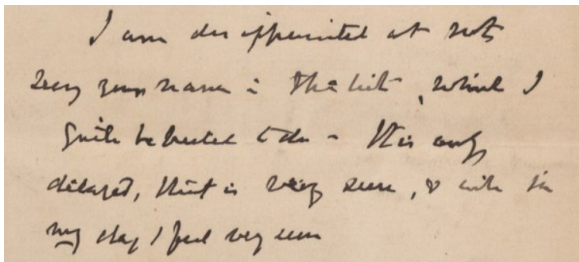 I am disappointed at not
seeing your name in the list, which I
quite expected to do - It is only
delayed, that is very sure, & with in
my day I feel very sure